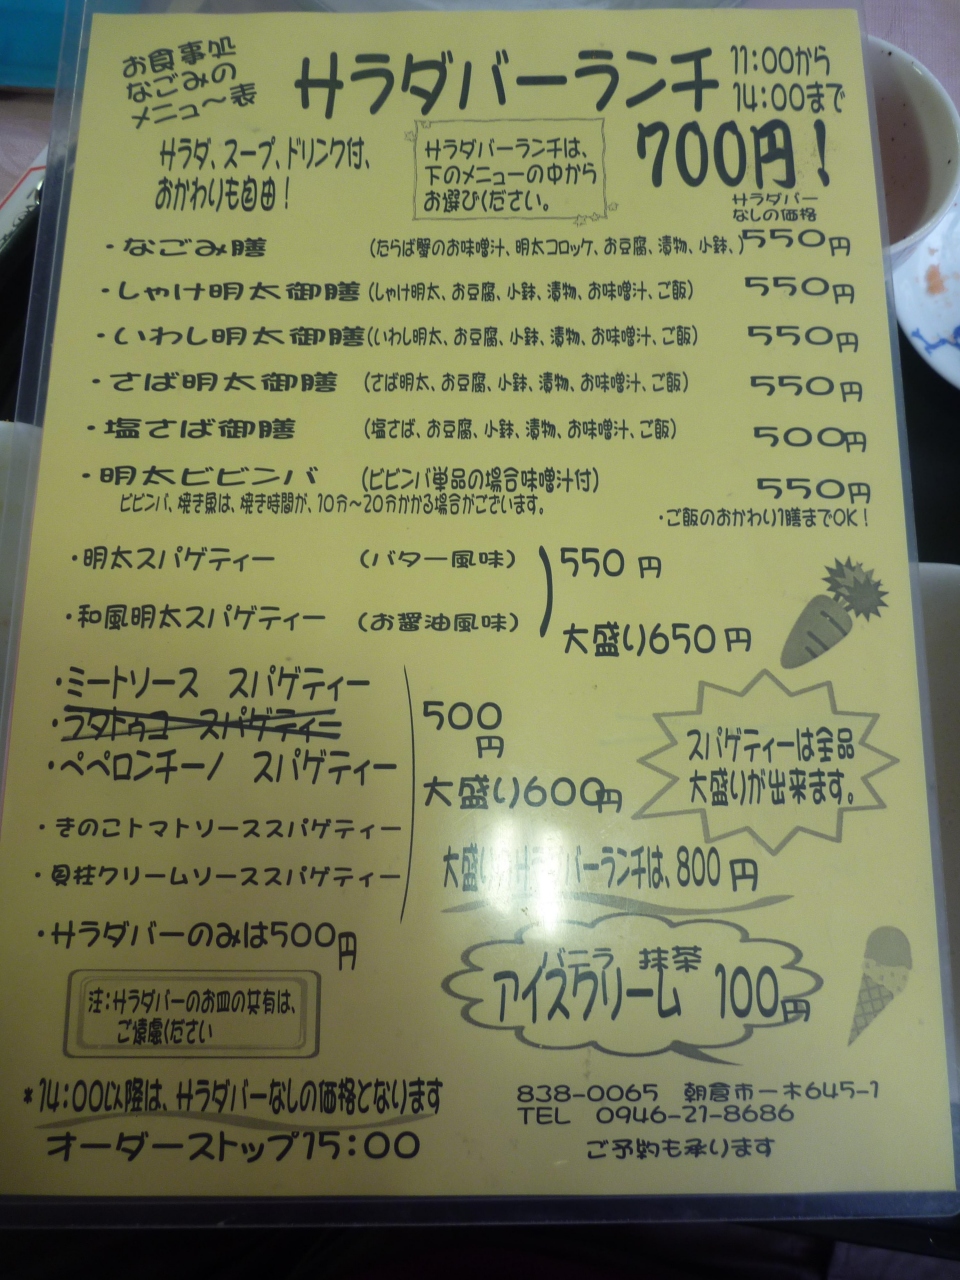 お食事処
なごみの
メニュ～表
サラダバーランチ
11:00から
14:00まで
サラダ、スープ、ドリンク付、
おかわりも自由！
サラダバーランチは、
下のメニューの中から
お選びください。
700円！
サラダバー
なしの価格
・なごみ膳 (たらば蟹のお味噌汁、明太コロッケ、お豆腐、漬物、小鉢、) 550円
・しゃけ明太御膳 (しゃけ明太、お豆腐、小鉢、漬物、お味噌汁、ご飯) 550円
・いわし明太御膳 (いわし明太、お豆腐、小鉢、漬物、お味噌汁、ご飯) 550円
・さば明太御膳 (さば明太、お豆腐、小鉢、漬物、お味噌汁、ご飯) 550円
・塩さば御膳 (塩さば、お豆腐、小鉢、漬物、お味噌汁、ご飯) 500円
・明太ビビンバ (ビビンバ単品の場合味噌汁付) 550円
ビビンバ、焼き魚は、焼き時間が、10分～20分かかる場合がございます。
・ご飯のおかわり1膳までOK！
・明太スパゲティー (バター風味) 550円
・和風明太スパゲティー (お醤油風味)
大盛り650円
・ミートソース スパゲティー
・ラタトゥユ スパゲティー
・ペペロンチーノ スパゲティー
・きのこトマトソーススパゲティー
・貝柱クリームソーススパゲティー
500
円
大盛り600円
スパゲティーは全品
大盛りが出来ます。
大盛りサラダバーランチは、800円
・サラダバーのみは500円
バニラ 抹茶
アイスクリーム 100円
注：サラダバーのお皿の共有は、
ご遠慮ください
*14:00以降は、サラダバーなしの価格となります
オーダーストップ15:00
838-0065 朝倉市一木645-1
TEL 0946-21-8686
ご予約も承ります